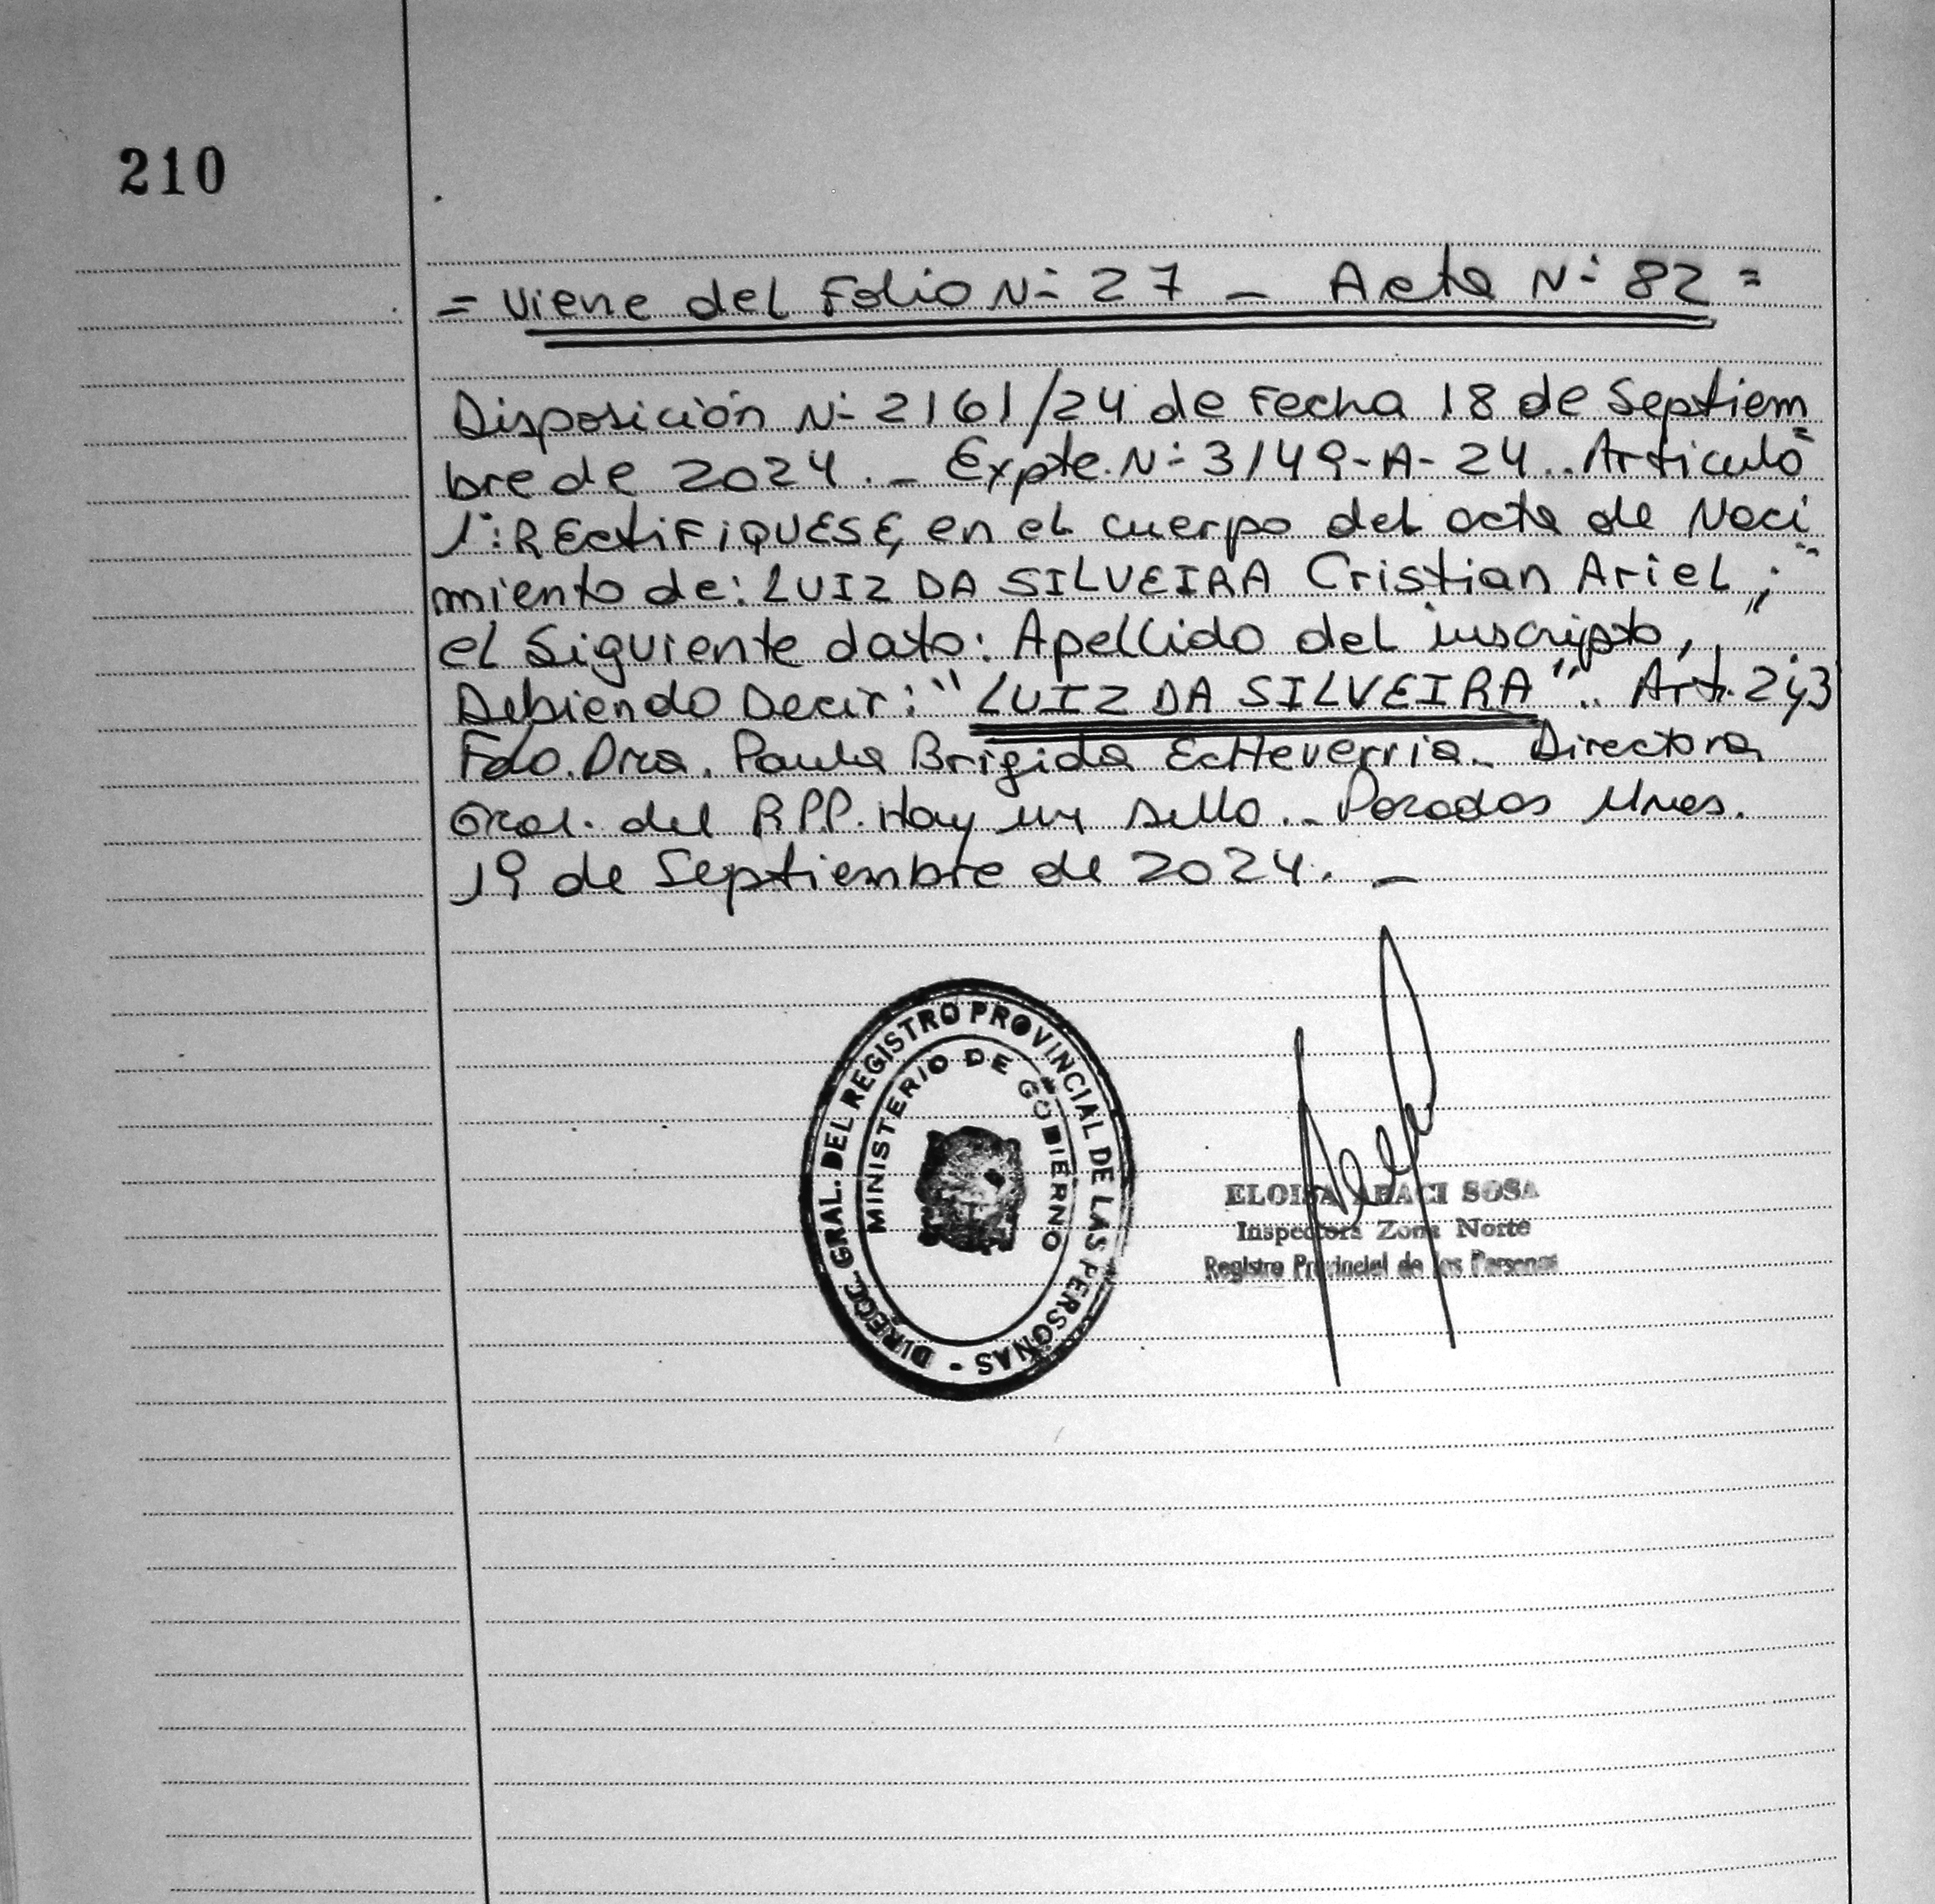 210
= Viene del Folio N- 27 - Acta N- 82 =
Disposición N- 2161/24 de Fecha 18 de Septiem
bre de 2024.- Expte. N- 3149-A-24.. Articulo
1°: REctiFiQUESE, en el cuerpo del acta de Naci
miento de: LUIZ DA SILVEIRA Cristian Ariel,;
el Siguiente dato: Apellido del inscripto,
Debiendo Decir: "LUIZ DA SILVEIRA".. Art. 2y3
Fdo. Dra. Paula Brigida EcHeverria.- Directora
Gral. del R.P.P. Hay un sello..- Posadas Mnes.
19 de Septiembre de 2024. -
DIRECC. GRAL. DEL REGISTRO PROVINCIAL DE LAS PERSONAS -
MINISTERIO DE GOBIERNO
ELOISA ARACI SOSA
Inspectora Zona Norte
Registro Provincial de las Personas